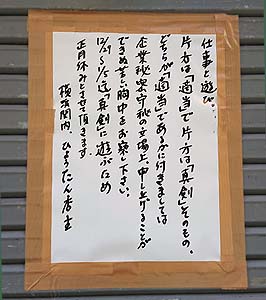 仕事と遊び…
片方は「適当」で片方は「真剣」そのもの。
どちらが「適当」であるかに付きましては
企業秘密守秘の立場上、申し上げることが
できぬ苦しい胸中をお察し下さい。
12/29〜1/5迄「真剣」に遊ぶため
正月休みとさせて頂きます。
横浜関内、ひょうたん